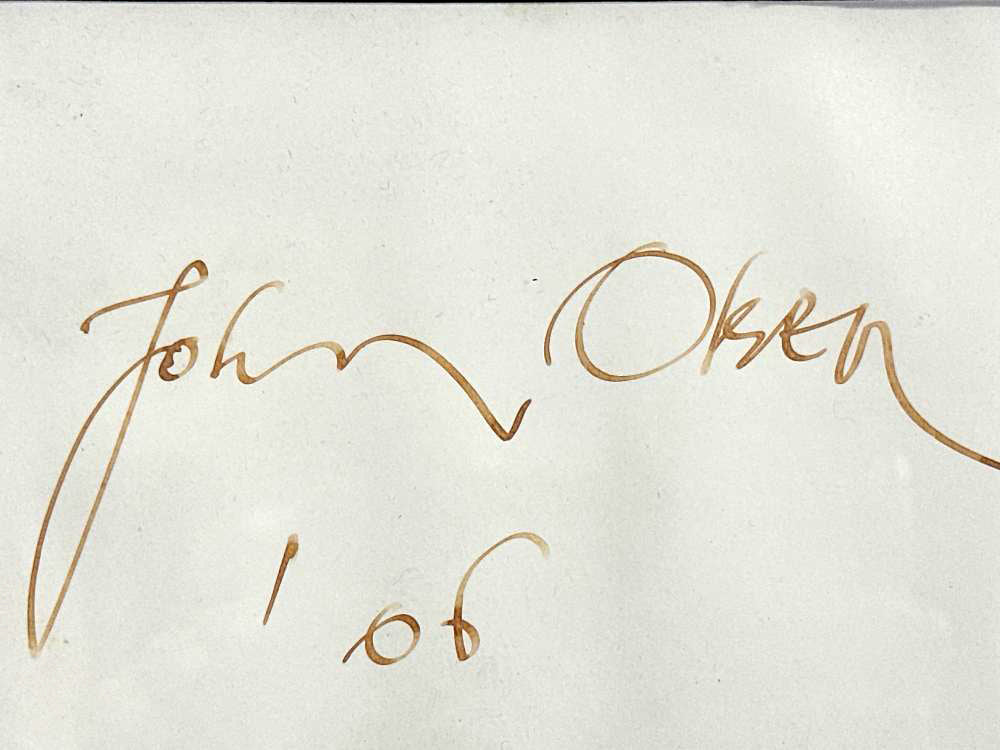 John Olsen
'06